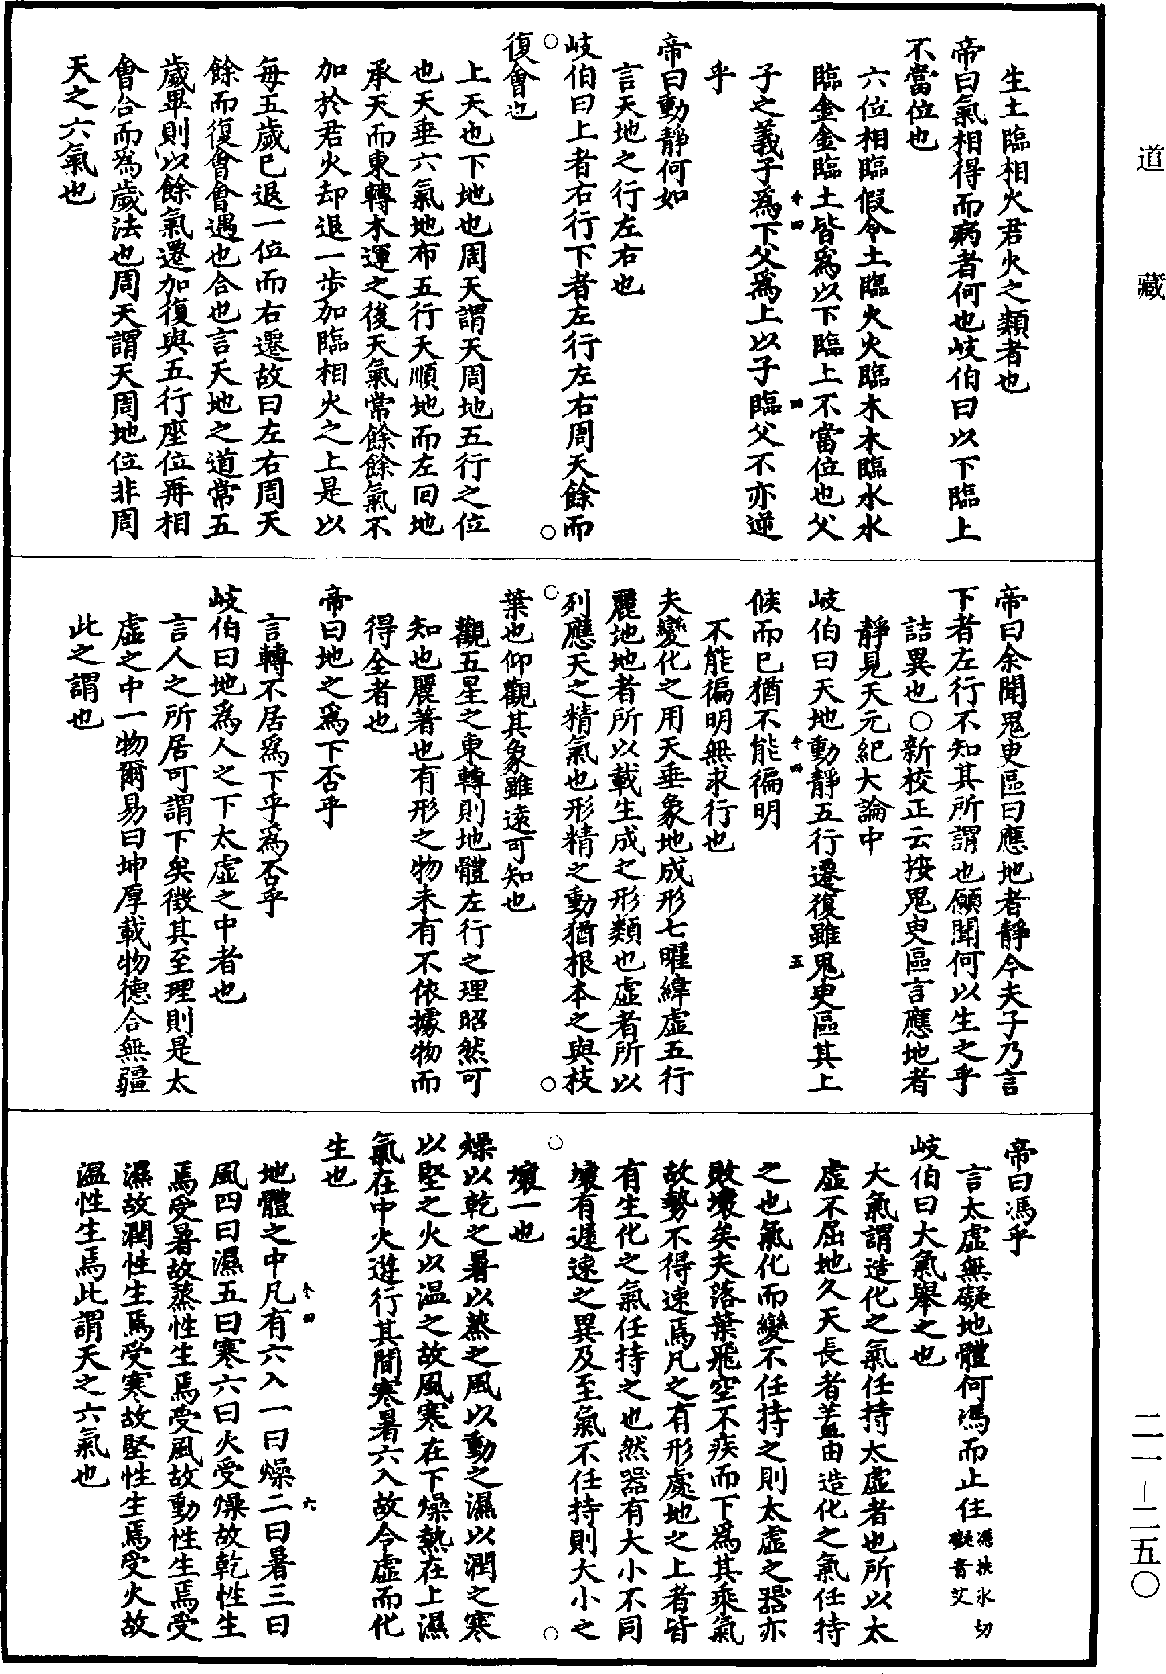 道藏
生土臨相火君火之類者也
帝曰氣相得而病者何也岐伯曰以下臨上
不當位也
六位相臨假令土臨火火臨木木臨水水
臨金金臨土皆爲以下臨上不當位也父
子之義子爲下父爲上以子臨父不亦逆
乎
帝曰動靜何如
言天地之行左右也
岐伯曰上者右行下者左行左右周天餘而
復會也
上天也下地也周天謂天周地五行之位
也天垂六氣地布五行天順地而左回地
承天而東轉木運之後天氣常餘餘氣不
加於君火却退一步加臨相火之上是以
每五歲已退一位而右遷故曰左右周天
餘而復會會遇也合也言天地之道常五
歲畢則以餘氣遷加復與五行座位再相
會合而爲歲法也周天謂天周地位非周
天之六氣也
帝曰余聞鬼臾區曰應地者靜今夫子乃言
下者左行不知其所謂也願聞何以生之乎
詰異也○新校正云按鬼臾區言應地者
靜見天元紀大論中
岐伯曰天地動靜五行遷復雖鬼臾區其上
候而已猶不能徧明
不能徧明無求行也
夫變化之用天垂象地成形七曜緯虛五行
麗地地者所以載生成之形類也虛者所以
列應天之精氣也形精之動猶根本之與枝
葉也仰觀其象雖遠可知也
觀五星之東轉則地體左行之理昭然可
知也麗著也有形之物未有不依據物而
得全者也
帝曰地之爲下否乎
言轉不居爲下乎爲否乎
岐伯曰地爲人之下太虛之中者也
言人之所居可謂下矣徵其至理則是太
虛之中一物爾易曰坤厚載物德合無疆
此之謂也
帝曰馮乎
言太虛無礙地體何馮而止住 馮扶冰切 礙音艾
岐伯曰大氣舉之也
大氣謂造化之氣任持太虛者也所以太
虛不屈地久天長者蓋由造化之氣任持
之也氣化而變不任持之則太虛之器亦
敗壞矣夫落葉飛空不疾而下爲其乘氣
故勢不得速焉凡之有形處地之上者皆
有生化之氣任持之也然器有大小不同
壞有遲速之異及至氣不任持則大小之
壞一也
燥以乾之暑以蒸之風以動之濕以潤之寒
以堅之火以温之故風寒在下燥熱在上濕
氣在中火遊行其間寒暑六入故令虛而化
生也
地體之中凡有六入一曰燥二曰暑三曰
風四曰濕五曰寒六曰火受燥故乾性生
焉受暑故蒸性生焉受風故動性生焉受
濕故潤性生焉受寒故堅性生焉受火故
温性生焉此謂天之六氣也
二一–二五〇